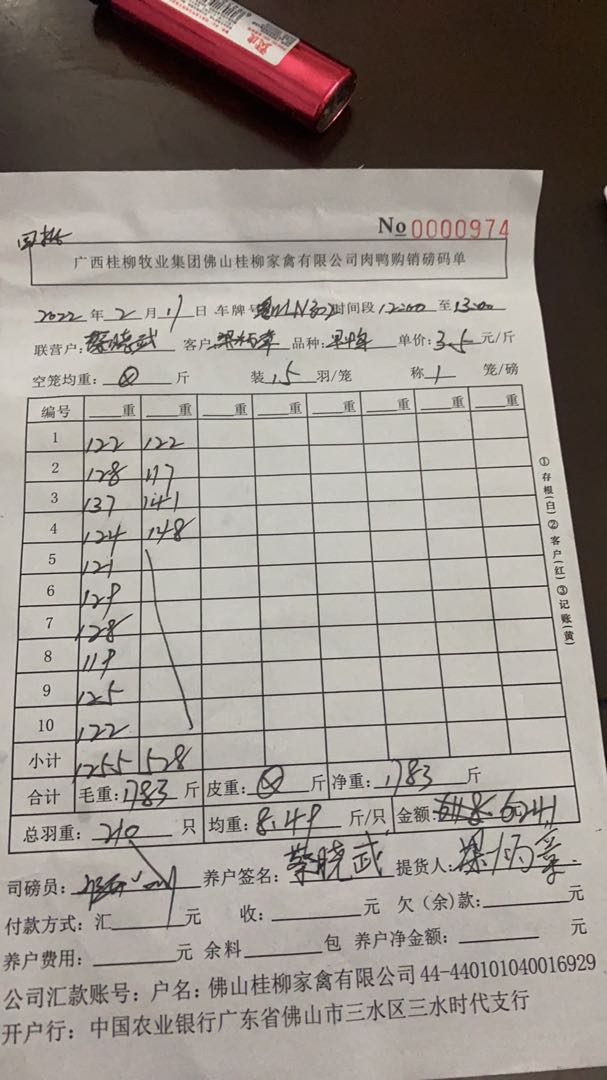 No 0000974
广西桂柳牧业集团佛山桂柳家禽有限公司肉鸭购销磅码单
2022年2月17日 车牌号 时间段12:00至13:00
联营户:蔡晓武 客户: 品种: 单价:3.5元/斤
空笼均重:⊗斤 装15羽/笼 称1笼/磅
编号 重 重 重 重 重 重 重 重
1 122 122
2 128 117
3 137 141
4 124 148
5 121
6 129
7 128
8 119
9 125
10 122
小计 1255 528
合计 毛重:1783斤 皮重:⊗斤 净重:1783斤
总羽重:210只 均重:8.49斤/只 金额: 6241
司磅员: 养户签名:蔡晓武 提货人:梁炳章
付款方式:汇 元 收: 元 欠(余)款: 元
养户费用: 元 余料 包 养户净金额: 元
公司汇款账号:户名:佛山桂柳家禽有限公司 44-440101040016929
开户行:中国农业银行广东省佛山市三水区三水时代支行
①存根(白)②客户(红)③记账(黄)